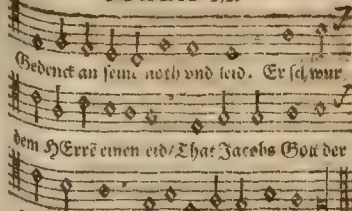 Gedenck an seine noth vnd leid. Er schwur
dem HErrē einen eid/That Jacobs Gott der